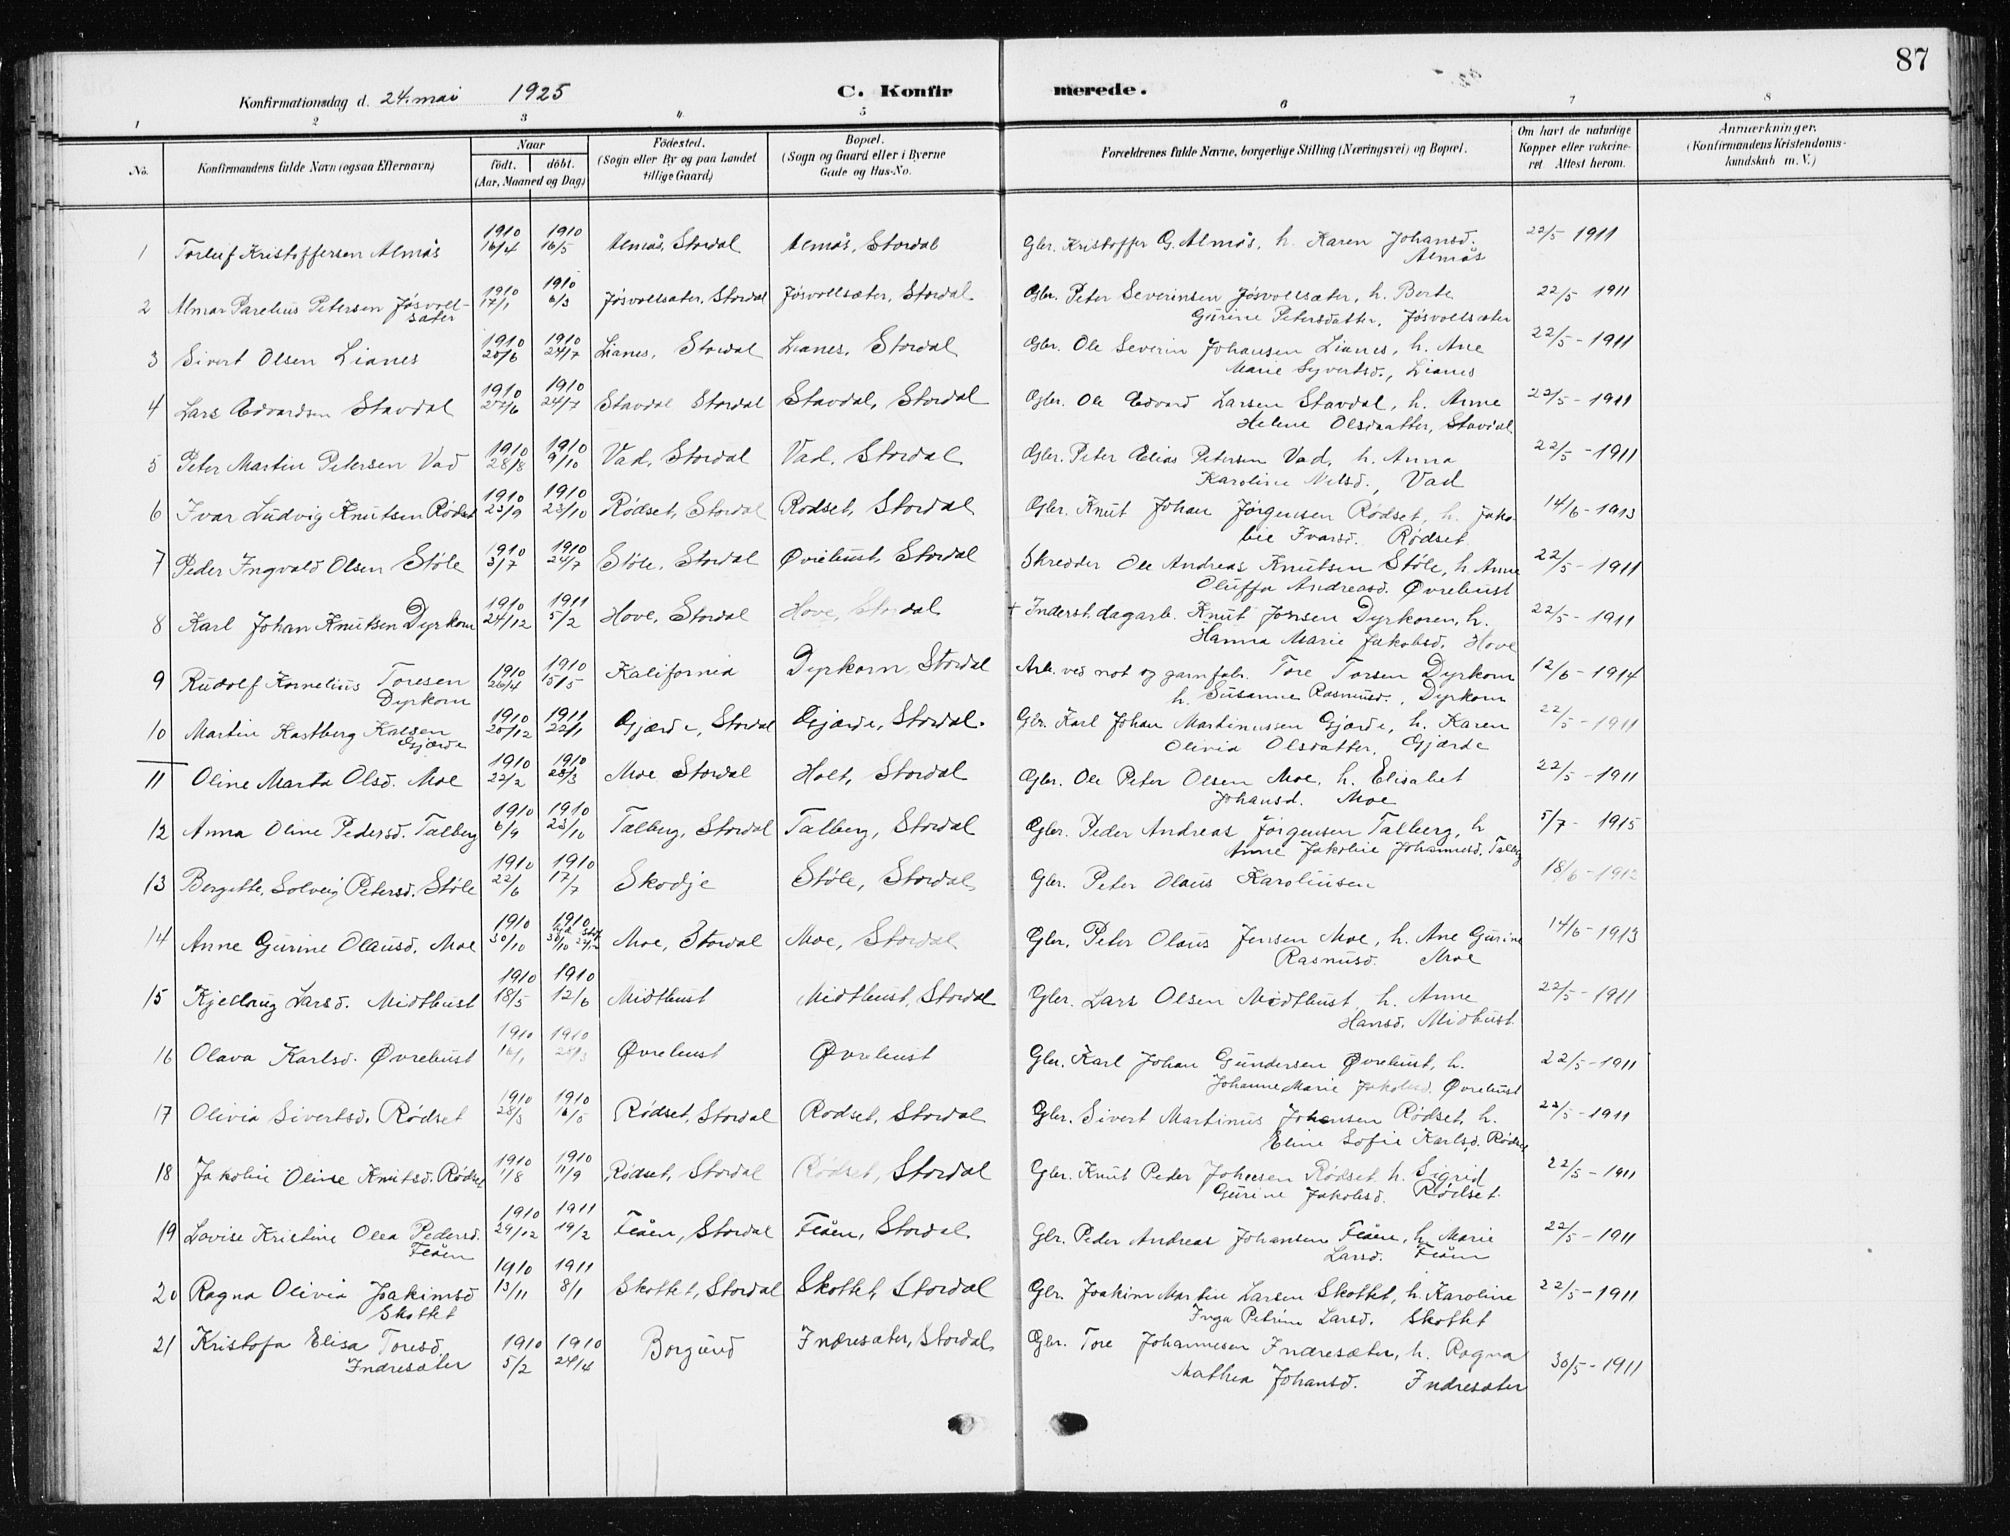 87
Konfirmationsdag d. 24. mai 1925 C. Konfirmerede.
1 2 3 4 5 6 7 8
No. Konfirmandens fulde Navn (ogsaa Efternavn) Naar født. døbt. (Aar, Maaned og Dag) Fødested. (Sogn eller By og paa Landet tillige Gaard) Bopæl. (Sogn og Gaard eller i Byerne Gade og Hus-No. Forældrenes fulde Navne, borgerlige Stilling (Næringsvei) og Bopæl. Om havt de naturlige Kopper eller vakcineret Attest herom. Anmærkninger. (Konfirmandens Kristendomskundskab m. V.)
1 Torleif Kristoffersen Almås 1910 16/4 1910 16/5 Almås, Stordal Almås, Stordal Gbr. Kristoffer G. Almås, h. Karen Johansd. Almås 22/5 1911
2 Almar Parelius Petersen Jøsvollsæter 1910 17/1 1910 6/3 Jøsvollsæter, Stordal Jøsvollsæter, Stordal Gbr. Peter Severinsen Jøsvollsæter, h. Berte Gurine Petersdatter, Jøsvollsæter 22/5 1911
3 Sivert Olsen Lianes 1910 20/6 1910 24/7 Lianes, Stordal Lianes, Stordal Gbr. Ole Severin Johansen Lianes, h. Ane Marie Syvertsd., Lianes 22/5 - 1911
4 Lars Edvardsen Stavdal 1910 27/6 1910 24/7 Stavdal Stordal Stavdal, Stordal Gbr. Ole Edvard Larsen Stavdal, h. Anne Helene Olsdaatter, Stavdal 22/5 - 1911
5 Peter Martin Petersen Vad 1910 28/8 1910 9/10 Vad, Stordal Vad, Stordal Gbr. Peter Elias Petersen Vad, h. Anna Karoline Nilsd., Vad 22/5 - 1911
6 Ivar Ludvig Knutsen Rødset 1910 23/9 1910 23/10 Rødset, Stordal Rødset, Stordal Gbr. Knut Johan Jørgensen Rødset, h. Jakobie Ivarsd. Rødset 14/6 - 1913
7 Peder Ingvald Olsen Støle 1910 3/7 1910 24/7 Støle, Stordal Øvrebust, Stordal Skredder Ole Andreas Knutsen Støle, h. Anne Oluffa Andreasd. Øvrebust 22/5 - 1911
8 Karl Johan Knutsen Dyrkorn 1910 24/12 1911 5/2 Hove, Stordal Hove, Stordal + Inderst. dagarb. Knut Jonsen Dyrkoren, h. Hanna Marie Jakobsd. Hove 22/5 - 1911
9 Rudolf Kornelius Toresen Dyrkorn 1910 26/4 1910 15/5 Kalifornia Dyrkorn, Stordal Arb. ved not og garnfabr. Tore Torsen Dyrkorn h. Susanne Rasmusd., Dyrkorn 12/6 - 1914
10 Martin Kastberg Kalsen Gjærde 1910 20/12 1911 22/1 Gjærde, Stordal Gjærde, Stordal. Gbr. Karl Johan Martinussen Gjærde, h. Karen Olivia Olsdatter, Gjærde 22/5 - 1911
11 Oline Marta Olsd. Moe 1910 22/2 1910 28/3 Moe Stordal Holt, Stordal Gbr. Ole Peter Olsen Moe, h. Elisabet Johansd. Moe 22/5 - 1911
12 Anna Oline Pedersd. Talberg 1910 6/9 1910 23/10 Talberg, Stordal Talberg, Stordal Gbr. Peder Andreas Jørgensen Talberg, h Anne Jakobie Johannesd. Talberg 5/7 - 1915
13 Bergitte Solveig Petersd. Støle 1910 22/6 1910 17/7 Skodje Støle, Stordal Gbr. Peter Olaus Karolinsen 18/6 - 1912
14 Anne Gurine Olausd. Moe 1910 30/10 1910 30/10 Moe, Stordal Moe, Stordal Gbr. Peter Olaus Jensen Moe, h. Ane Gurine Rasmusd. Moe 14/6 - 1913
15 Kjellaug Larsd. Midtbust 1910 18/5 1910 12/6 Midtbust Midtbust, Stordal Gbr. Lars Olsen Midtbust h. Anne Hansd. Midtbust 22/5 - 1911
16 Olava Karlsd. Øvrebust 1910 16/1 1910 28/3 Øvrebust Øvrebust Gbr. Karl Johan Gundersen Øvrebust, h. Johanne Marie Jakobsd. Øvrebust 22/5 - 1911
17 Olivia Sivertsd. Rødset 1910 28/3 1910 16/5 Rødset, Stordal Rødset, Stordal Gbr. Sivert Martinus Johansen Rødset, h. Eline Sofie Karlsd. Rødset 22/5 - 1911
18 Jakobie Oline Knutsd. Rødset 1910 1/8 1910 11/9 Rødset, Stordal Rødset, Stordal Gbr. Knut Peder Johnsen Rødset h. Sigrid Gurine Jakobsd. Rødset 22/5 - 1911
19 Lovise Kristine Olea Pedersd. Flåen 1910 29/12 1911 19/2 Flåen, Stordal Flåen, Stordal Gbr. Peder Andreas Johansen Flåen, h. Marie Larsd. Flåen 22/5 - 1911
20 Ragna Olivia Joakimsd Skottet 1910 13/11 1911 8/1 Skottet, Stordal Skottet, Stordal Gbr. Joakim Martin Larsen Skottet, h. Karoline Inga Petrine Larsd. Skottet 22/5 - 1911
21 Kristofa Elisa Toresd. Indresæter 1910 5/2 1910 24/4 Borgund Indresæter, Stordal Gbr. Tore Johannesen Indresæter, h. Ragna Mathea Johansd. Indresæter 30/5 - 1911